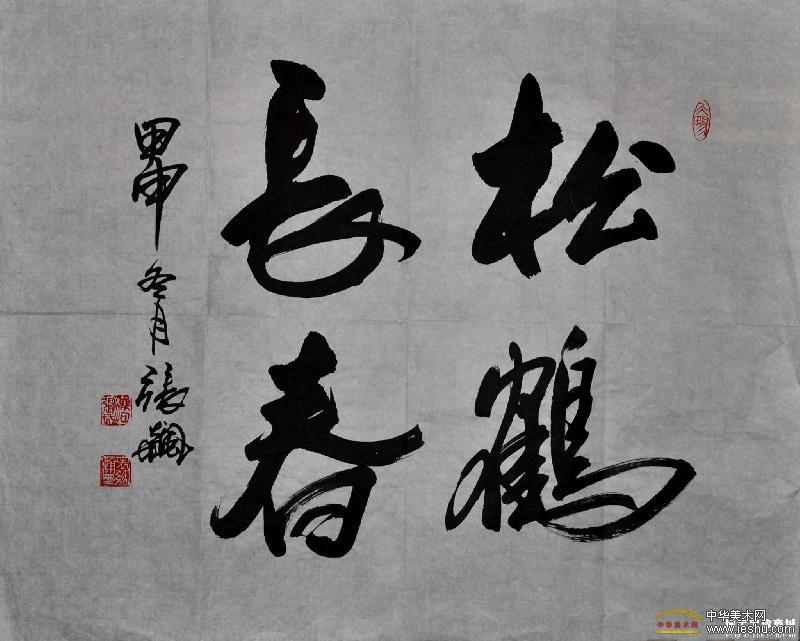 松鶴
長春
甲申冬月張
中华美术网
中华美术网
www.ieshu.com